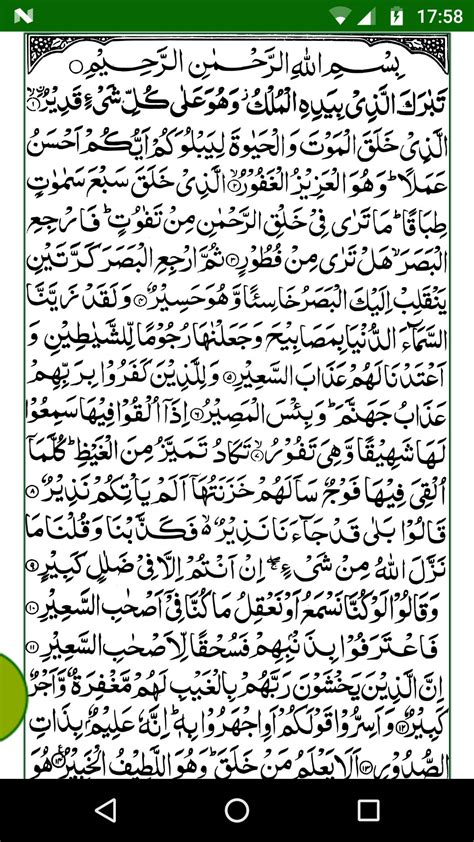 17:58
بِسْمِ اللهِ الرَّحْمٰنِ الرَّحِيْمِ
تَبٰرَكَ الَّذِيْ بِيَدِهِ الْمُلْكُ ۫ وَهُوَ عَلٰى كُلِّ شَيْءٍ قَدِيْرُ ۨ ۙ﴿۱﴾
الَّذِيْ خَلَقَ الْمَوْتَ وَ الْحَيٰوةَ لِيَبْلُوَكُمْ اَيُّكُمْ اَحْسَنُ
عَمَلًا ؕ وَ هُوَ الْعَزِيْزُ الْغَفُوْرُ ۙ﴿۲﴾ الَّذِيْ خَلَقَ سَبْعَ سَمٰوٰتٍ
طِبَاقًا ؕ مَا تَرٰى فِيْ خَلْقِ الرَّحْمٰنِ مِنْ تَفٰوُتٍ ؕ فَارْجِعِ
الْبَصَرَ ۙ هَلْ تَرٰى مِنْ فُطُوْرٍ ﴿۳﴾ ثُمَّ ارْجِعِ الْبَصَرَ كَرَّتَيْنِ
يَنْقَلِبْ اِلَيْكَ الْبَصَرُ خَاسِئًا وَّ هُوَ حَسِيْرٌ ﴿۴﴾ وَ لَقَدْ زَيَّنَّا
السَّمَآءَ الدُّنْيَا بِمَصَابِيْحَ وَ جَعَلْنٰهَا رُجُوْمًا لِّلشَّيٰطِيْنِ وَ
اَعْتَدْنَا لَهُمْ عَذَابَ السَّعِيْرِ ﴿۵﴾ وَ لِلَّذِيْنَ كَفَرُوْا بِرَبِّهِمْ
عَذَابُ جَهَنَّمَ ؕ وَ بِئْسَ الْمَصِيْرُ ﴿۶﴾ اِذَاۤ اُلْقُوْا فِيْهَا سَمِعُوْا
لَهَا شَهِيْقًا وَّ هِيَ تَفُوْرُ ۙ﴿۷﴾ تَكَادُ تَمَيَّزُ مِنَ الْغَيْظِ ؕ كُلَّمَاۤ
اُلْقِيَ فِيْهَا فَوْجٌ سَاَلَهُمْ خَزَنَتُهَاۤ اَلَمْ يَاْتِكُمْ نَذِيْرٌ ﴿۸﴾
قَالُوْا بَلٰى قَدْ جَآءَنَا نَذِيْرٌ ۬ۙ فَكَذَّبْنَا وَ قُلْنَا مَا
نَزَّلَ اللهُ مِنْ شَيْءٍ ۚۖ اِنْ اَنْتُمْ اِلَّا فِيْ ضَلٰلٍ كَبِيْرٍ ﴿۹﴾
وَ قَالُوْا لَوْ كُنَّا نَسْمَعُ اَوْ نَعْقِلُ مَا كُنَّا فِيْۤ اَصْحٰبِ السَّعِيْرِ ﴿۱۰﴾
فَاعْتَرَفُوْا بِذَنْۢبِهِمْ ۚ فَسُحْقًا لِّاَصْحٰبِ السَّعِيْرِ ﴿۱۱﴾
اِنَّ الَّذِيْنَ يَخْشَوْنَ رَبَّهُمْ بِالْغَيْبِ لَهُمْ مَّغْفِرَةٌ وَّ اَجْرٌ
كَبِيْرٌ ﴿۱۲﴾ وَ اَسِرُّوْا قَوْلَكُمْ اَوِ اجْهَرُوْا بِهٖ ؕ اِنَّهٗ عَلِيْمٌۢ بِذَاتِ
الصُّدُوْرِ ﴿۱۳﴾ اَلَا يَعْلَمُ مَنْ خَلَقَ ؕ وَ هُوَ اللَّطِيْفُ الْخَبِيْرُ ﴿۱۴﴾ هُوَ